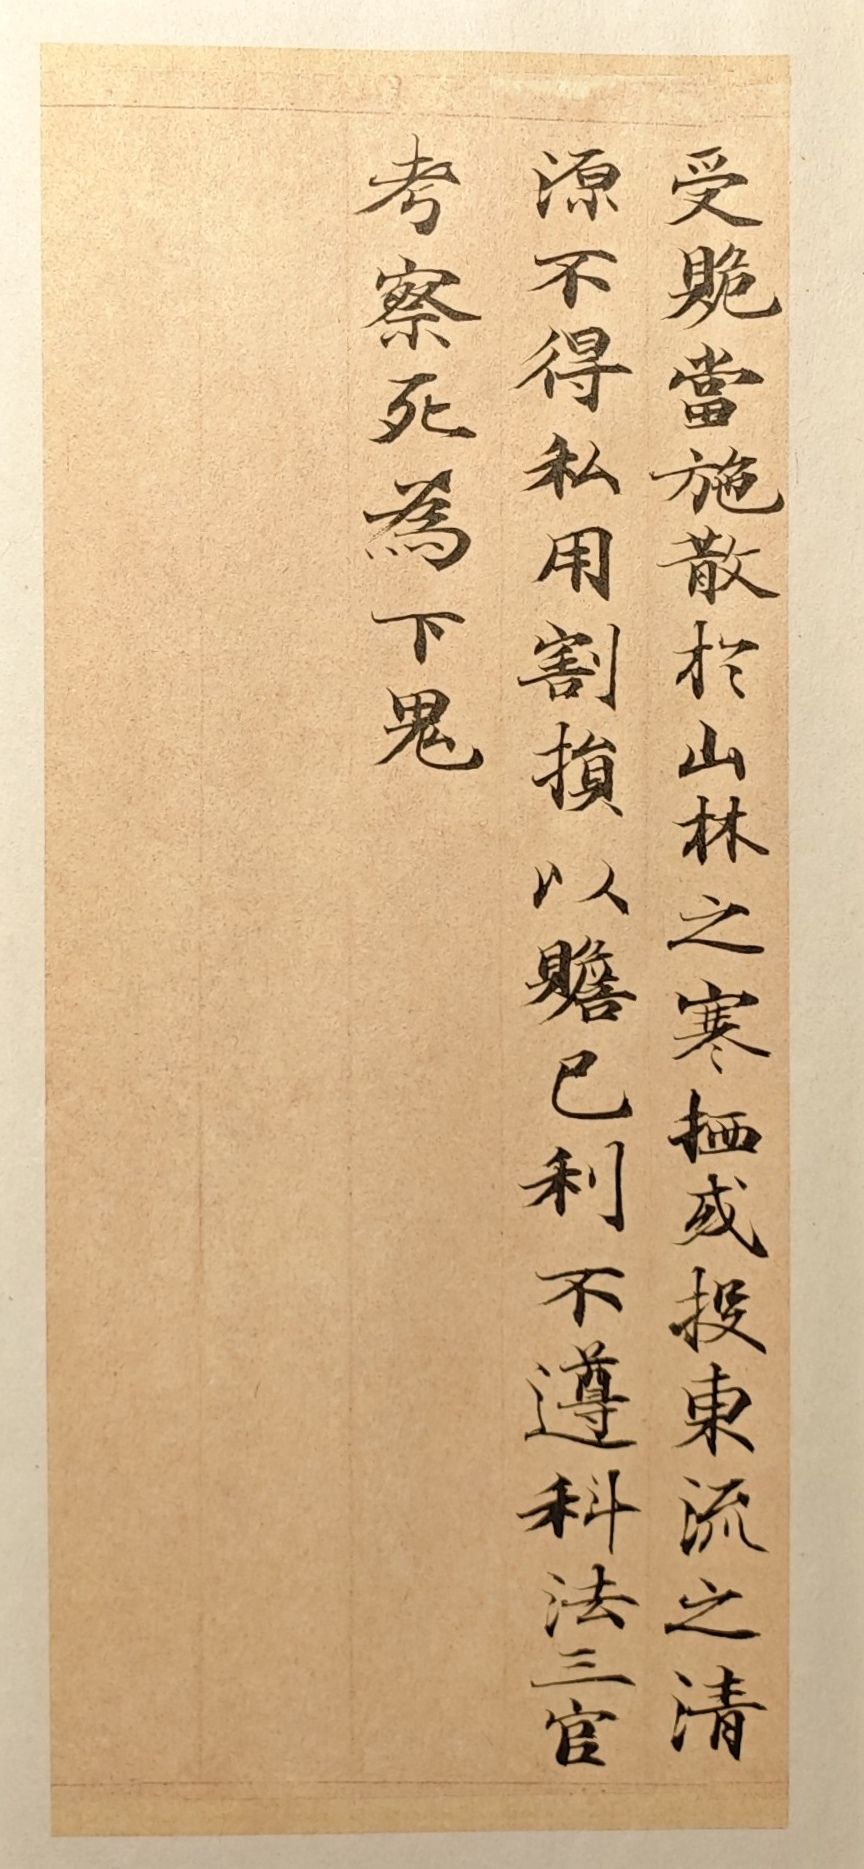 受䞈當施散於山林之寒栖或投東流之清
源不得私用割損以贍己利不遵科法三官
考察死為下鬼